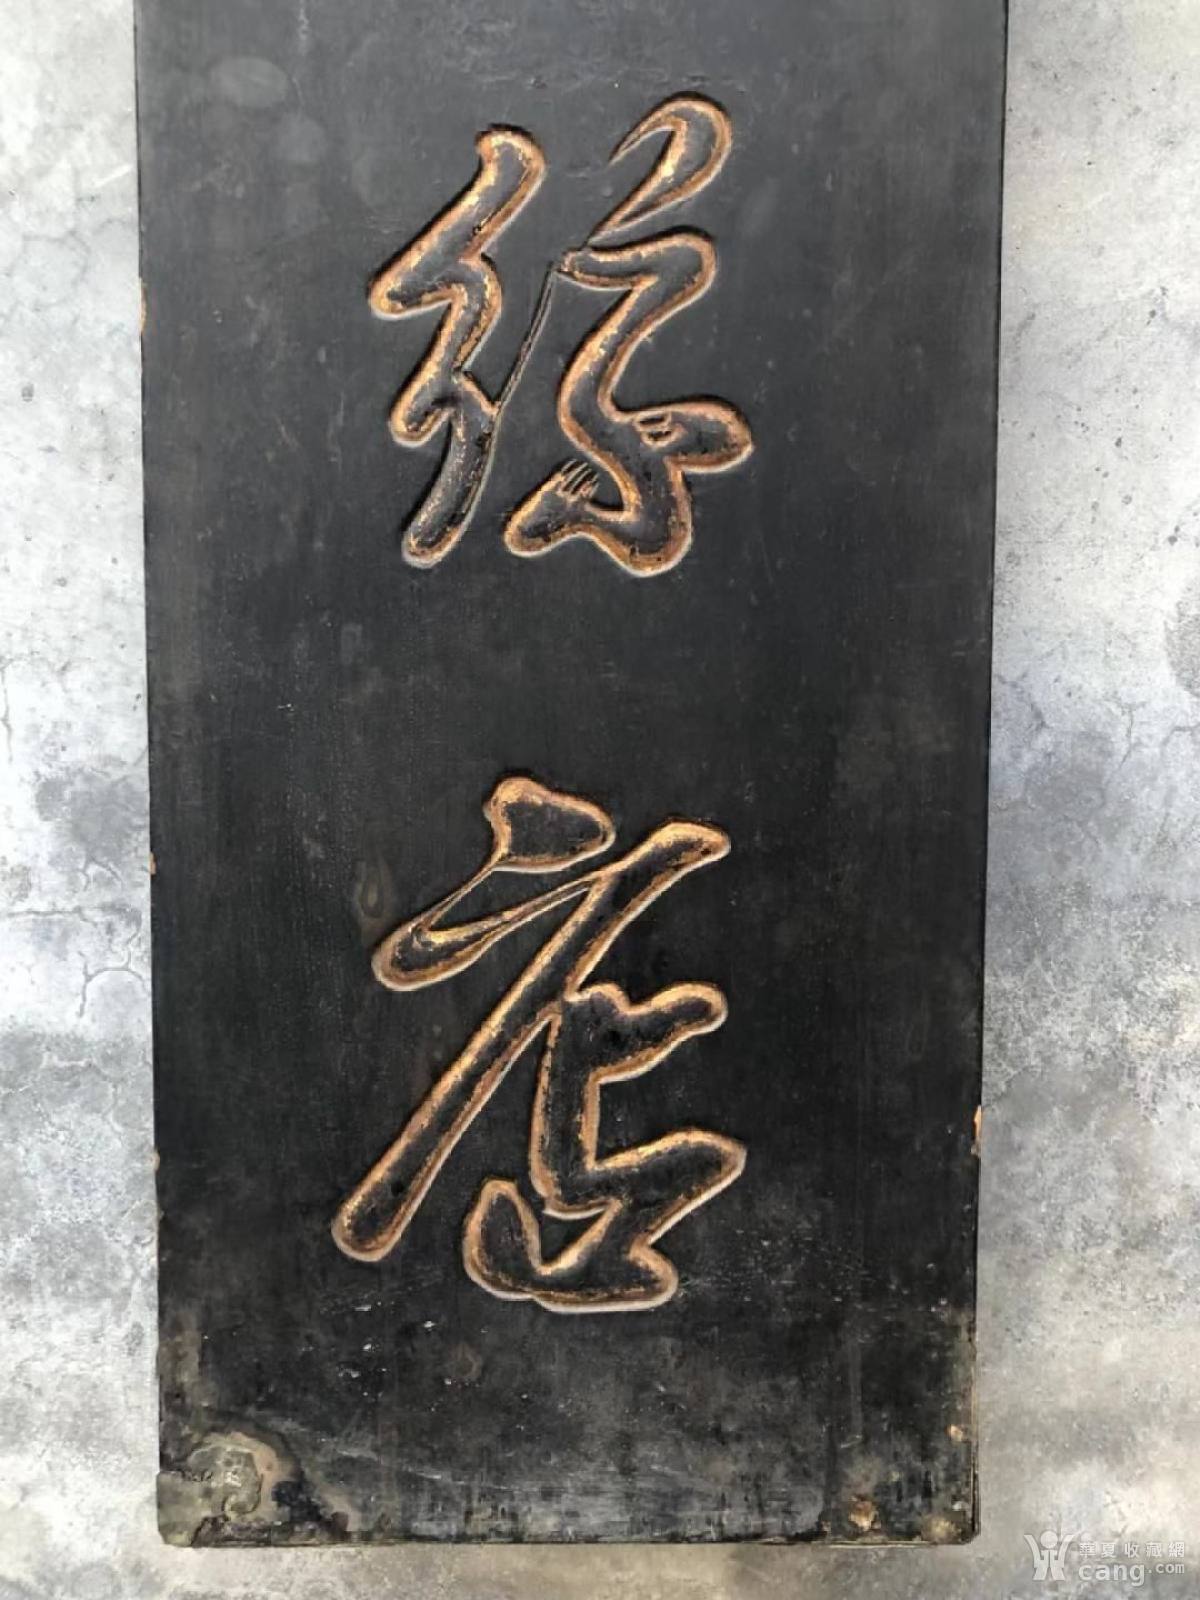 店
華夏收藏網
cang.com